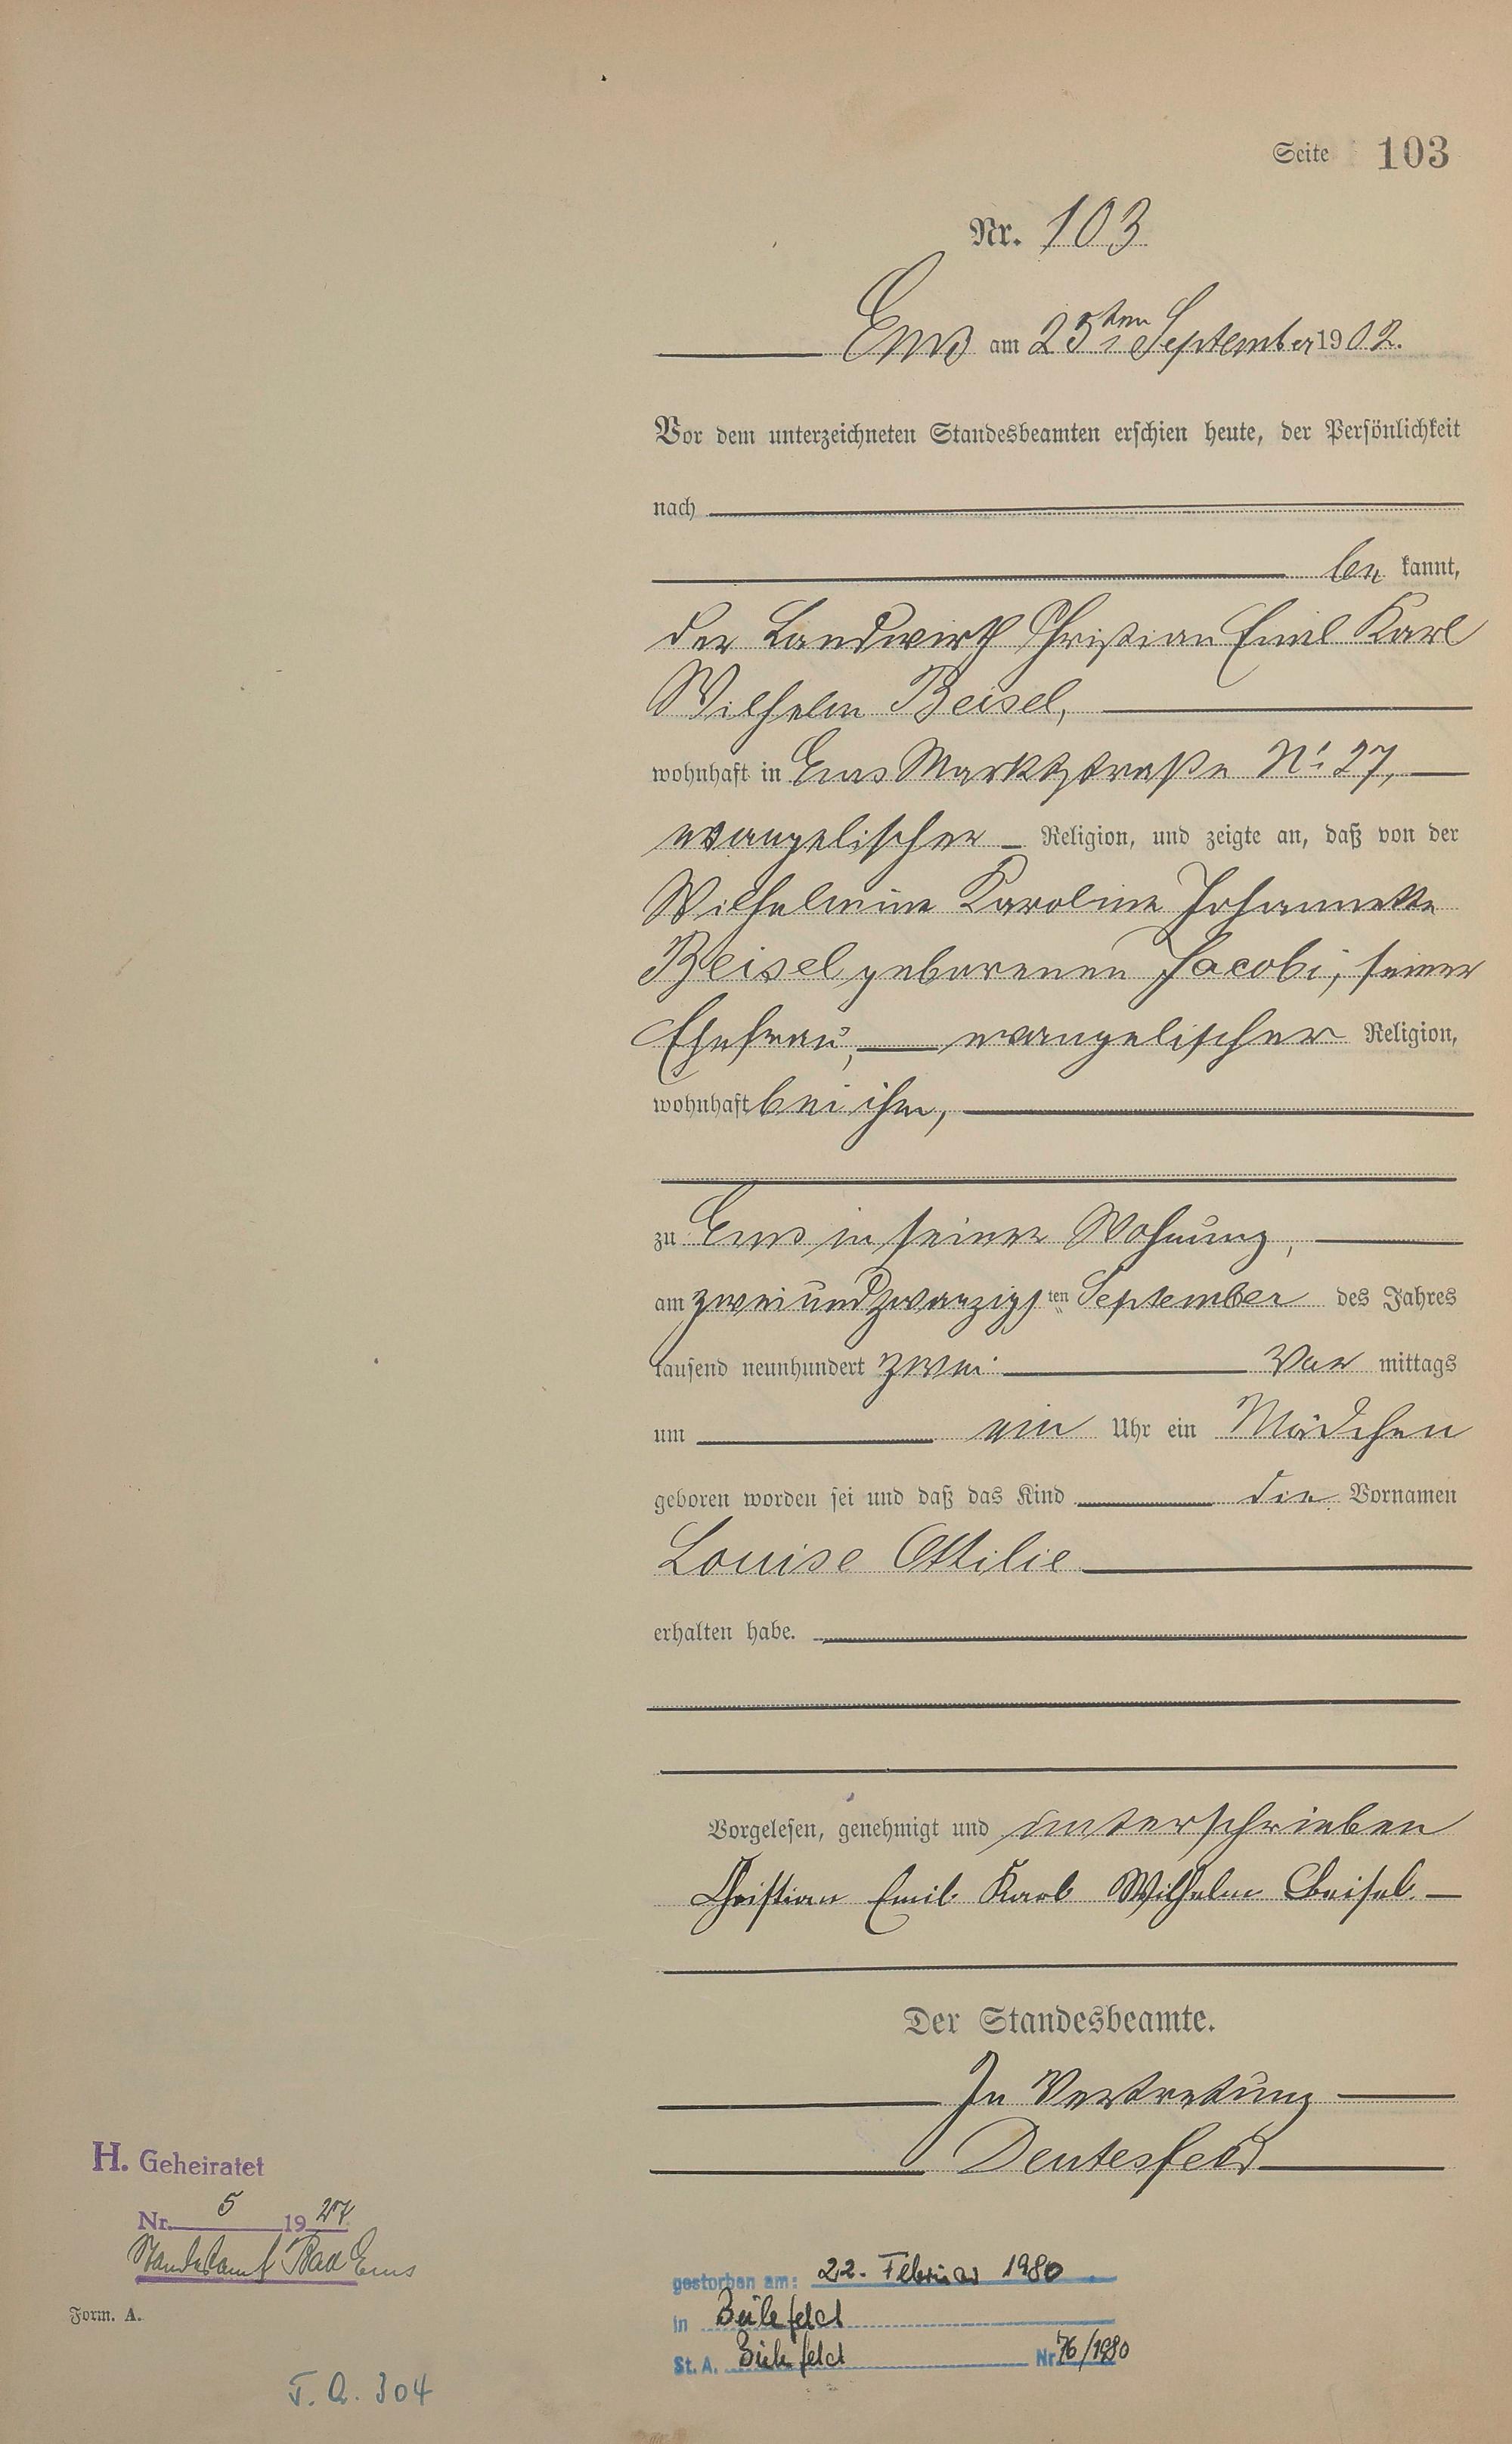 Seite 103
Nr. 103
Ems am 25ten September 1902.
Vor dem unterzeichneten Standesbeamten erschien heute, der Persönlichkeit
nach
be kannt,
der Landwirth Christian Emil Karl
Wilhelm Beisel,
wohnhaft in Ems Marktstraße No 27,
evangelischer Religion, und zeigte an, daß von der
Wilhelmine Karoline Johannette
Beisel geborenen Jacobi, seiner
Ehefrau, evangelischer Religion,
wohnhaft bei ihm,
zu Ems in seiner Wohnung,
am zweiundzwanzigsten September des Jahres
tausend neunhundert zwei Vor mittags
um ein Uhr ein Mädchen
geboren worden sei und daß das Kind die Vornamen
Louise Ottilie
erhalten habe.
Vorgelesen, genehmigt und unterschrieben
Christian Emil Karl Wilhelm Beisel.
Der Standesbeamte.
In Vertretung
Deutesfeld
H. Geheiratet
Nr. 5 1927
Standesamt Bad Ems
Form. A.
gestorben am: 22. Februar 1980
in Bielefeld
St. A. Bielefeld Nr 76/1980
T. A. 304